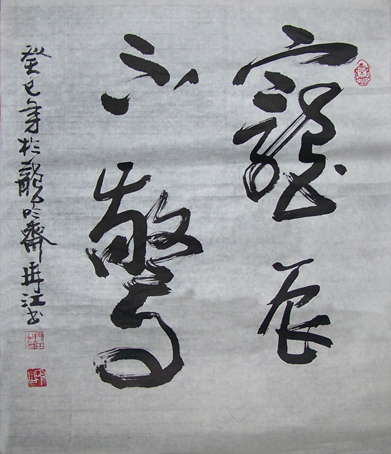 寵辱
不驚
癸巳年於龍吟齋江书